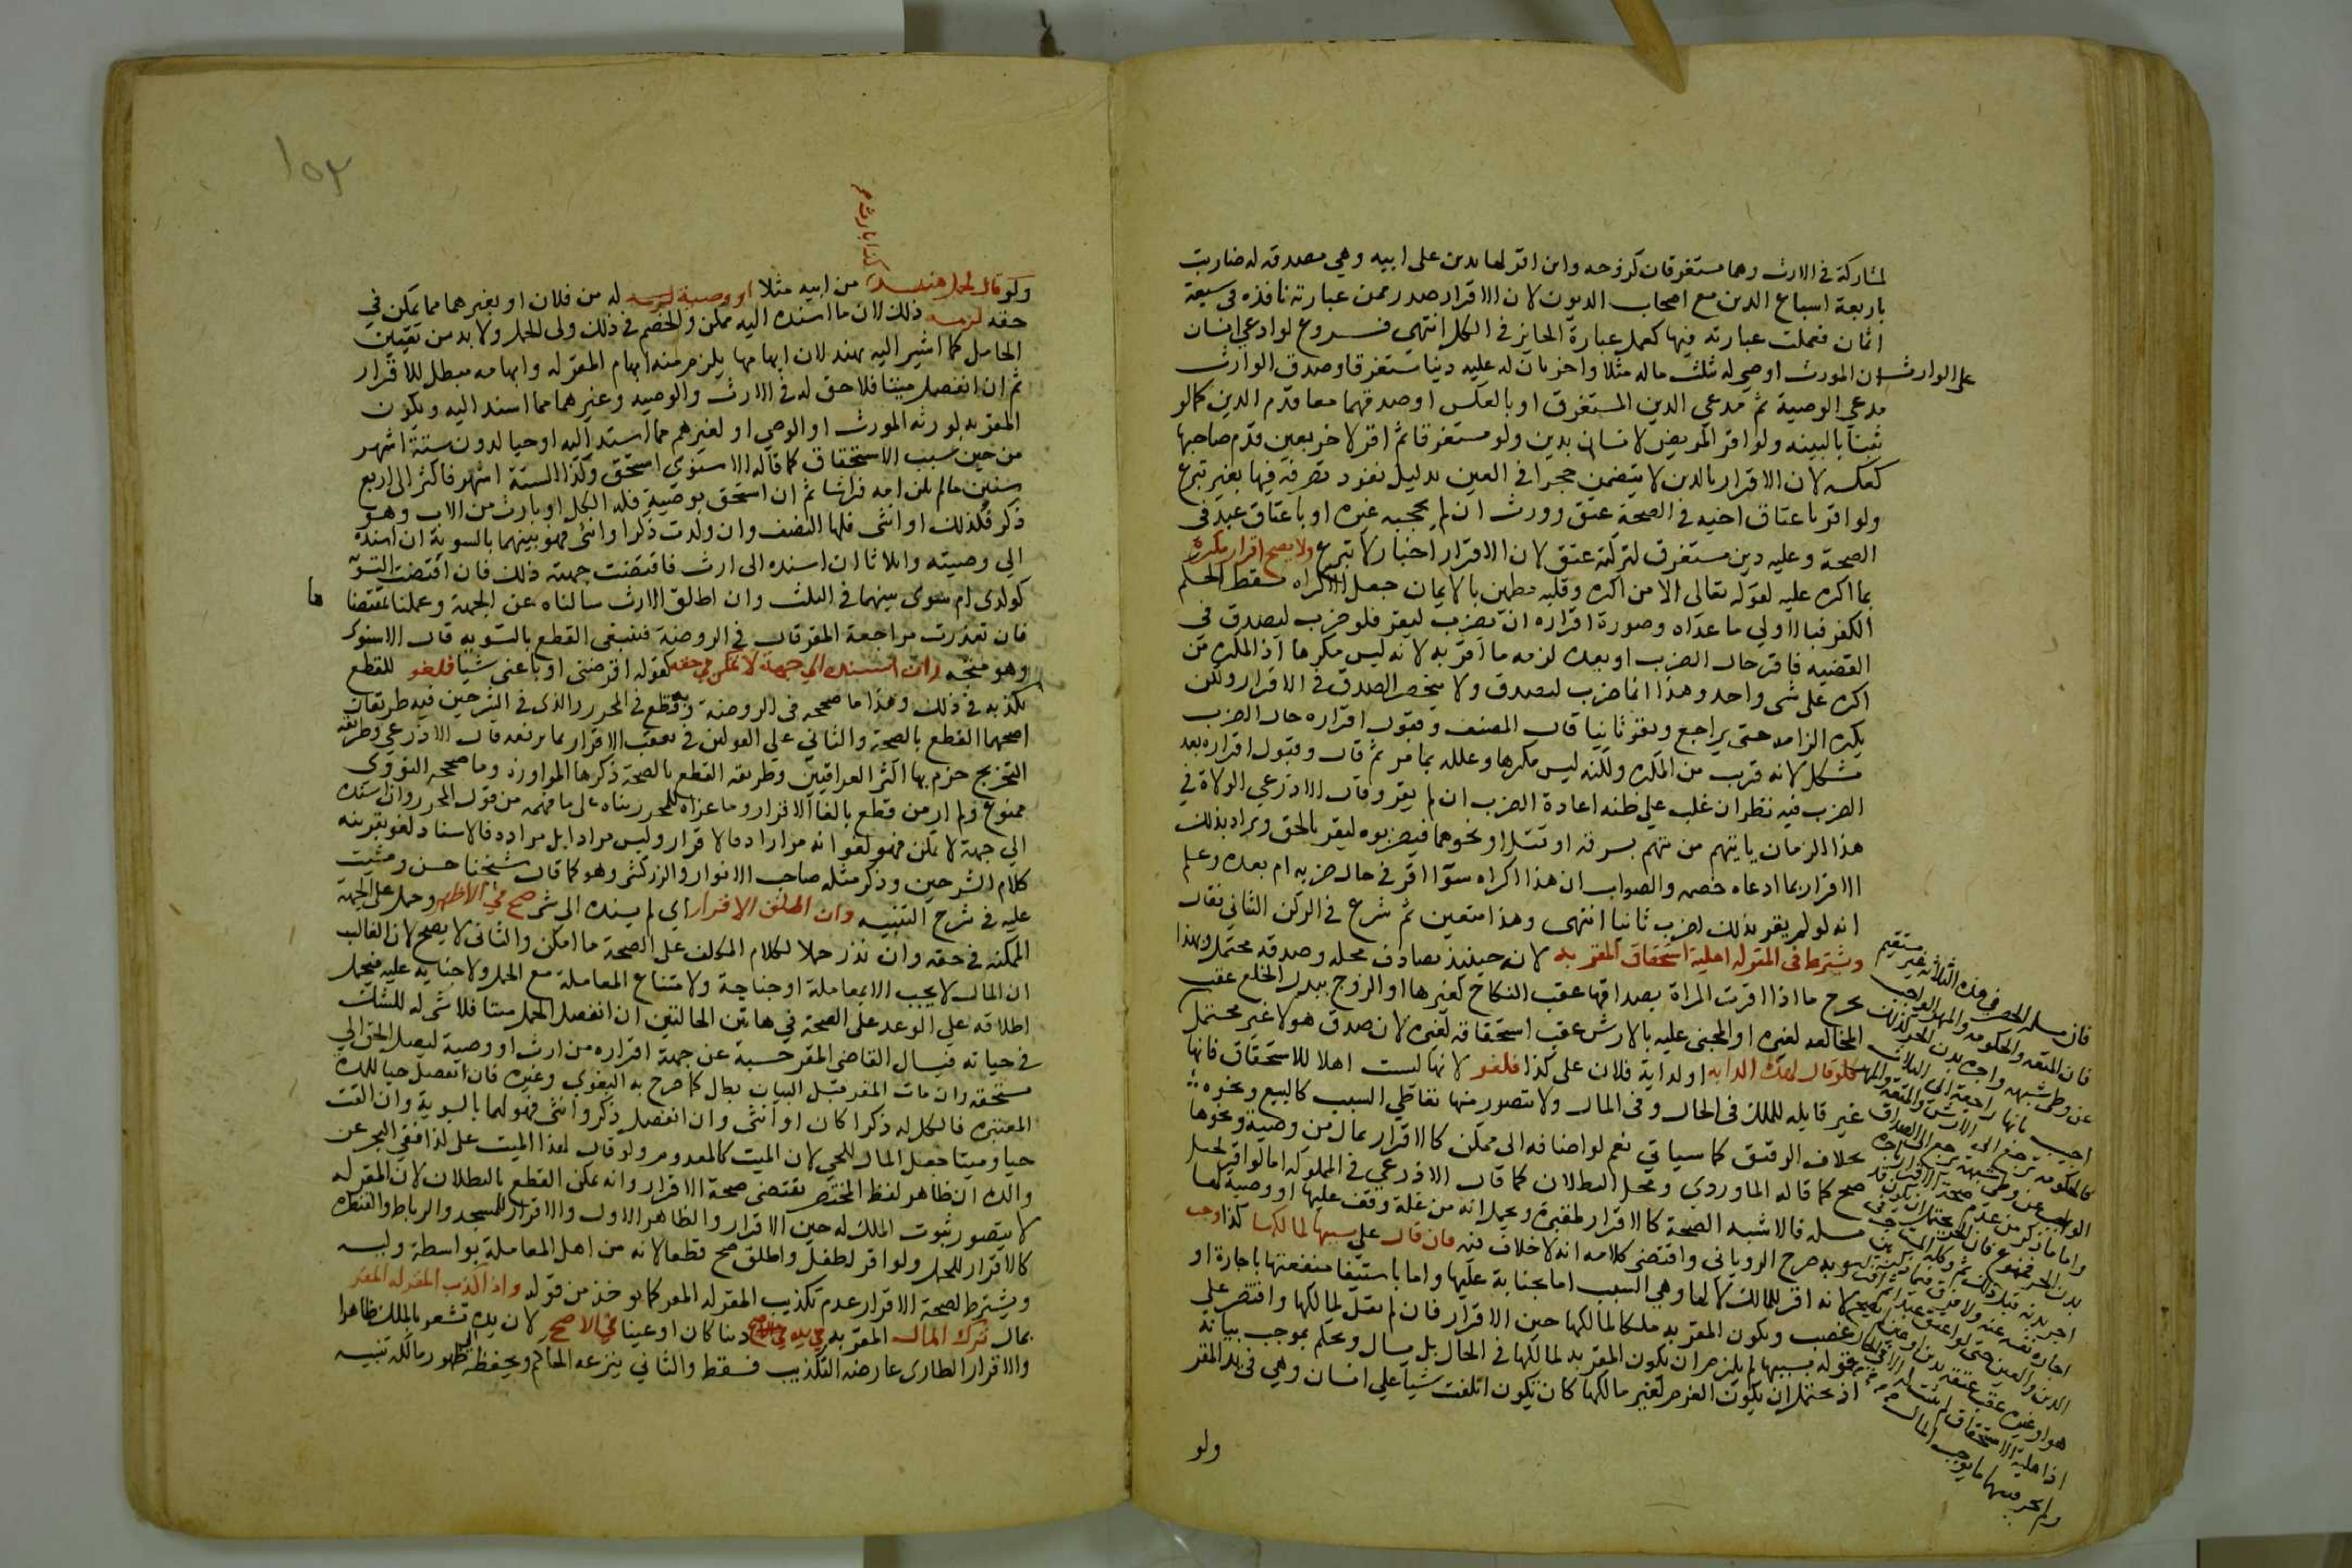 لمشاركة في الارث وهما مستغرقان كزوجه وابن اقر لها بدين على ابيه وهي مصدقه له ضاربت
باربعة اسباع الدين مع اصحاب الديون لان الاقرار صدر ممن عبارته نافذه في سبعة
اثمان فعملت عبارته فيها كعمل عبارة الحايز في الكل انتهى فروع لو ادعى انسان
على الوارث ان المورث اوصى له بثلث ماله مثلا واخر بان له عليه دينا مستغرقا وصدق الوارث
مدعي الوصية ثم مدعي الدين المستغرق او بالعكس او صدقهما معا قدم الدين كما لو
ثبتا بالبينه ولو اقر المريض لانسان بدين ولو مستغرقا ثم اقر لاخر بعين قدم صاحبها
كعكسه لان الاقرار بالدين لا يتضمن حجرا في العين بدليل نفوذ تصرفه فيها بغير تبرع
ولو اقر باعتاق اخيه في الصحة عتق وورث ان لم يحجبه غيره او باعتاق عبد في
الصحة وعليه دين مستغرق لتركته عتق لان الاقرار اخبار لا تبرع ولا يصح اقرار مكره
بما اكره عليه لقوله تعالى الا من اكره وقلبه مطمئن بالايمان جعل الاكراه مسقطا لحكم
الكفر فبالاولى ما عداه وصورة اقراره ان يضرب ليقر فلو ضرب ليصدق في
القضيه فاقر حال الضرب او بعده لزمه ما اقر به لانه ليس مكرها اذ المكره من
اكره على شي واحد وهذا انما ضرب ليصدق ولا ينحصر الصدق في الاقرار ولكن
يكره الزامه حتى يراجع ويقر ثانيا قال المصنف وقبول اقراره حال الضرب
مشكل لانه قريب من المكره ولكنه ليس مكرها وعلله بما مر ثم قال وقبول اقراره بعد
الضرب فيه نظر ان غلب على ظنه اعادة الضرب ان لم يقر وقال الاذرعي الولاة في
هذا الزمان ياتيهم من يتهم بسرقه او قتل او نحوهما فيضربوه ليقر بالحق ويراد بذلك
الاقرار بما ادعاه خصمه والصواب ان هذا اكراه سوا اقر في حال ضربه ام بعده وعلم
انه لو لم يقر بذلك لضرب ثانيا انتهى وهذا متعين ثم شرع في الركن الثاني فقال
ويشترط في المقر له اهلية استحقاق المقر به لانه حينيذ يصادف محله وصدقه محتمل وبهذا
يخرج ما اذا اقرت المراة بصداقها عقب النكاح لغيرها او الزوج ببدل الخلع عقب
المخالعه لغيره او المجني عليه بالارش عقب استحقاقه لغيره لان صدق هولا غير محتمل
فلو قال لهذه الدابه او لدابة فلان على كذا فلغو لانها ليست اهلا للاستحقاق فانها
غير قابله للملك في الحال وفي المال ولا يتصور منها تعاطي السبب كالبيع ونحوه
بخلاف الرقيق كما سياتي نعم لو اضافه الى ممكن كالاقرار بمال من وصية ونحوها
صح كما قاله الماوردي ومحل البطلان كما قال الاذرعي في المملوكه اما لو اقر لخيل
مسبله فالاشبه الصحة كالاقرار لمقبرة ويحمل انه من غلة وقف عليها او وصية لها
وبه صرح الروياني واقتضى كلامه انه لا خلاف فيه فان قال على بسببها لمالكها كذا وجب
لانه اقر للمالك لا لها وهي السبب اما بجناية عليها واما باستيفا منفعتها باجارة او
غصب ويكون المقر به ملكا لمالكها حين الاقرار فان لم يقل لمالكها واقتصر على
قوله بسببها لم يلزم ان يكون المقر به لمالكها في الحال بل يسال ويحكم بموجب بيانه
اذ يحتمل ان يكون المقر لغير مالكها كان يكون اتلفت شيا على انسان وهي في يد المقر
ولو
فان سلم الحصر في هذه الثلاثة غير مستقيم
فان المتعه والحكومه والمهر الواجب
عن وطي شبهة واجرة بدن الحر كذلك
اجيب بانها راجعة الى الثلاث
١٥٣
ولو قال لحمل هند كذا بارث من ابيه مثلا او وصية له من فلان او بغيرهما مما يمكن في
حقه لزمه ذلك لان ما اسنده اليه ممكن والخصم في ذلك ولي الحمل ولا بد من تعيين
الحامل كما اشير اليه بهند لان ابهامها يلزم منه ابهام المقر له وابهامه مبطل للاقرار
ثم ان انفصل ميتا فلا حق له في الارث والوصيه وغيرهما مما اسند اليه ويكون
المقر به لورثه المورث او الموصي او لغيرهم مما اسند اليه او حيا لدون ستة اشهر
من حين سبب الاستحقاق كما قاله الاسنوي استحق وكذا لستة اشهر فاكثر الى اربع
سنين ما لم تكن امه فراشا ثم ان استحق بوصية فله الكل او بارث من الاب وهو
ذكر فكذلك او انثى فلها النصف وان ولدت ذكرا وانثى فهو بينهما بالسوية ان اسنده
الى وصيته واثلاثا ان اسنده الى ارث فاقتضت جهته ذلك فان اقتضت التسوية
كولدي ام سوى بينهما في الثلث وان اطلق الارث سالناه عن الجهة وعملنا بمقتضاها
فان تعذرت مراجعة المقر قال في الروضة فينبغي القطع بالتسويه قال الاسنوي
وهو متجه وان اسنده الى جهة لا تمكن في حقه كقوله اقرضني او باعني شيا فلغو للقطع
بكذبه في ذلك وهذا ما صححه في الروضة وقطع به في المحرر والذي في الشرحين فيه طريقان
اصحهما القطع بالصحة والثاني على القولين في تعقيب الاقرار بما يرفعه قال الاذرعي وطريقه
التخريج جزم بها اكثر العراقيين وطريقه القطع بالصحة ذكرها المراوزه وما صححه النووي
ممنوع ولم ار من قطع بالغا الاقرار وما عزاه للمحرر بناه على ما فهمه من قول المحرر وان اسنده
الى جهة لا تمكن فهو لغو انه من ارادة الاقرار وليس مرادا بل مراده فالاسناد لغو بقرينه
كلام الشرحين وذكر مثله صاحب الانوار والزركشي وهو كما قال شيخنا حسن ومشيت
عليه في شرح التنبيه وان اطلق الاقرار اي لم يسنده الى شي صح في الاظهر وحمل على الجهة
الممكنه في حقه وان ندر حملا لكلام المكلف على الصحة ما امكن والثاني لا يصح لان الغالب
ان المال لا يجب الا بمعاملة او جناية ولا متناع المعاملة مع الحمل ولا جناية عليه فيحمل
اطلاقه على الوعد على الصحة في هاتين الحالتين ان انفصل الحمل ميتا فلا شي له للشك
في حياته فيسال القاضي المقر حسبة عن جهة اقراره من ارث او وصية ليصل الحق الى
مستحقه وان مات المقر قبل البيان بطل كما صرح به البغوي وغيره فان انفصل حيا للمدة
المعتبره فالكل له ذكرا كان او انثى وان انفصل ذكر وانثى فهو لهما بالسوية وان القت
حيا وميتا جعل المال للحي لان الميت كالمعدوم ولو قال لهذا الميت على كذا ففي البحر عن
والده ان ظاهر لفظ المختصر يقتضي صحة الاقرار وانه يمكن القطع بالبطلان لان المقر له
لا يتصور ثبوت الملك له حين الاقرار والظاهر الاول والاقرار للمسجد والرباط والقنطرة
كالاقرار للحمل ولو اقر لطفل واطلق صح قطعا لانه من اهل المعاملة بواسطة وليه
ويشترط لصحة الاقرار عدم تكذيب المقر له المقر كما يوخذ من قوله واذا كذب المقر له المقر
بمال ترك المال المقر به في يده دينا كان او عينا في الاصح لان يده تشعر بالملك ظاهرا
والاقرار الطارى عارضه التكذيب فسقط والثاني ينزعه الحاكم ويحفظه الى ظهور مالكه تنبيه